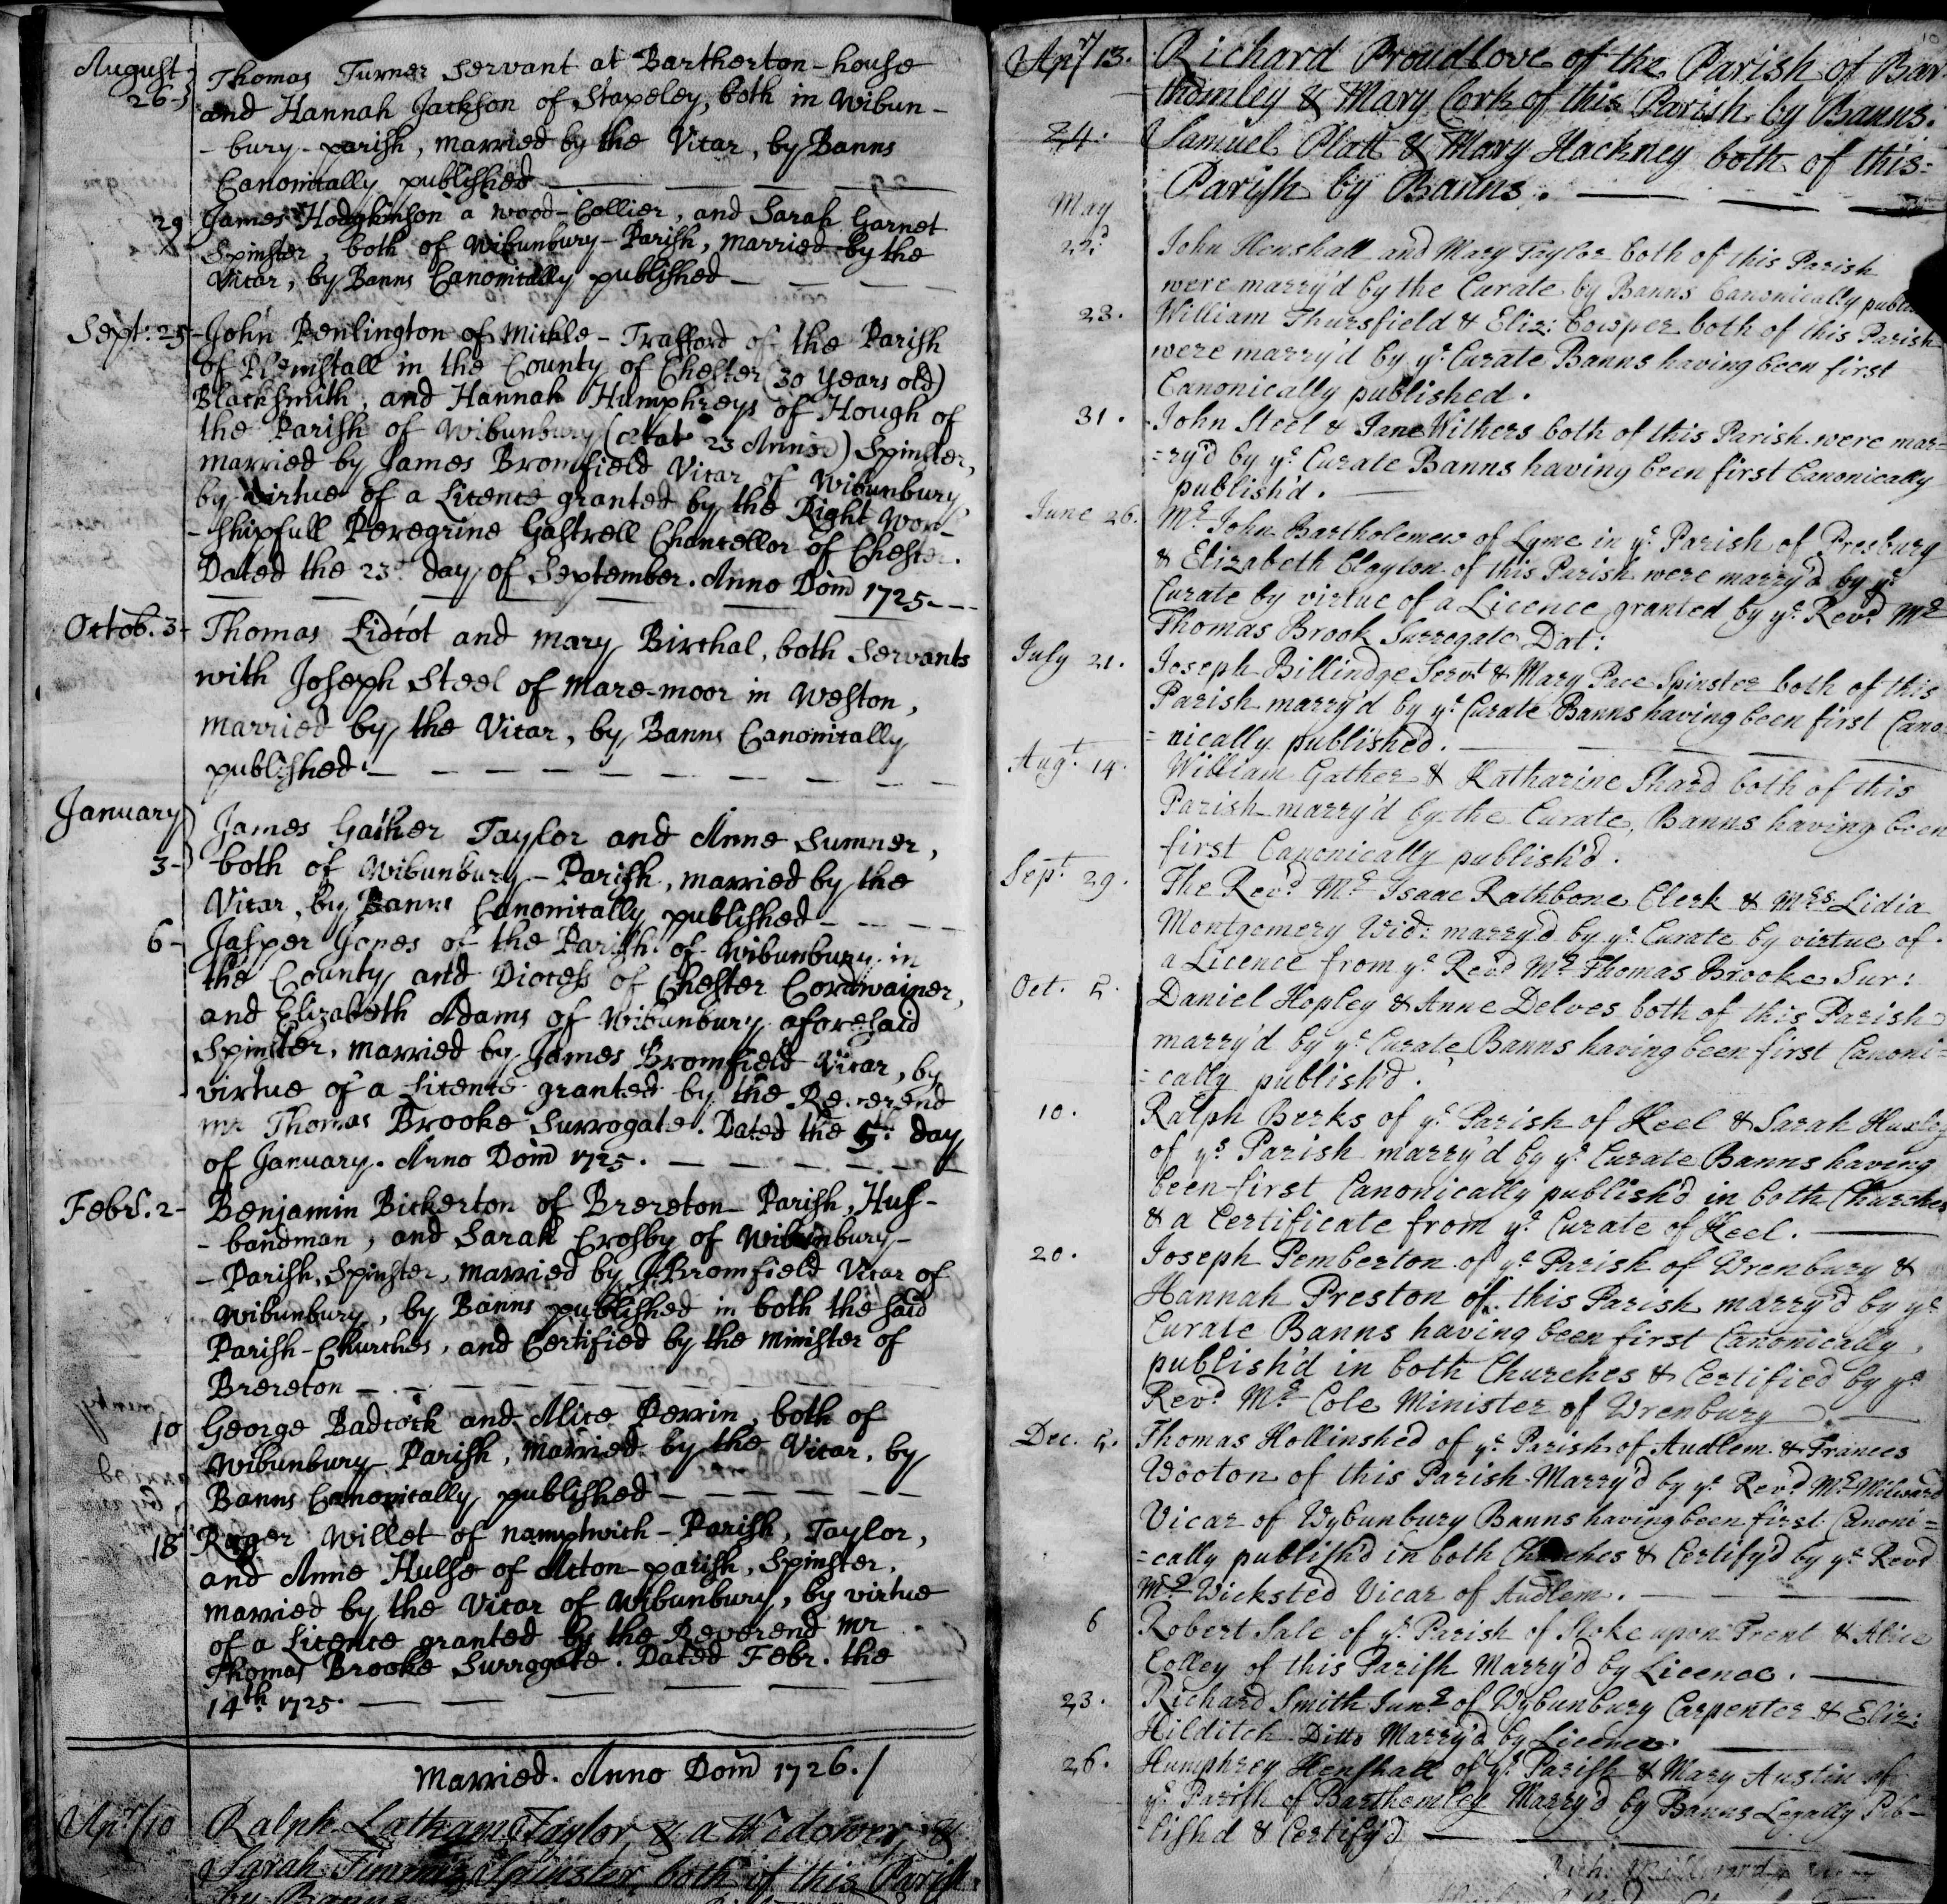 August
26 Thomas Turner Servant at Bartherton-house
and Hannah Jackson of Stapeley, both in Wibun-
-bury-parish, married by the Vicar, by Banns
Canonically published
29 James Hodgkinson a wood-Collier, and Sarah Garnet
Spinster, both of Wibunbury-Parish, married by the
Vicar, by Banns Canonically published
Sept: 25 John Penlington of Mickle-Trafford of the Parish
of Plemstall in the County of Chester (30 years old)
Blacksmith, and Hannah Humphreys of Hough of
the Parish of Wibunbury (ætat 23 Annor) Spinster,
married by James Bromfield Vicar of Wibunbury,
by virtue of a Licence granted by the Right Wor-
-shipfull Peregrine Gastrell Chancellor of Chester.
Dated the 23d day of September. Anno Dom 1725
Octob. 3 Thomas Lidcot and Mary Birchal, both Servants
with Joseph Steel of Mare-moor in Weston,
married by the Vicar, by Banns Canonically
published
January
3 James Gather Taylor and Anne Sumner,
both of Wibunbury-Parish, married by the
Vicar, by Banns Canonically published
6 Jasper Jones of the Parish of Wibunbury in
the County and Diocess of Chester Cordwainer,
and Elizabeth Adams of Wibunbury aforesaid
Spinster, married by James Bromfield Vicar, by
virtue of a Licence granted by the Reverend
Mr Thomas Brooke Surrogate. Dated the 5th day
of January. Anno Dom 1725.
Febr. 2 Benjamin Bickerton of Brereton-Parish, Hus-
-bandman, and Sarah Crosby of Wibunbury-
-Parish, Spinster, married by J. Bromfield Vicar of
Wibunbury, by Banns published in both the said
Parish-Churches, and Certified by the Minister of
Brereton
10 George Badcock and Alice Perrin, both of
Wibunbury-Parish, married by the Vicar, by
Banns Canonically published
18 Roger Willet of Namptwich-Parish, Taylor,
and Anne Hulse of Acton-parish, Spinster,
married by the Vicar of Wibunbury, by virtue
of a Licence granted by the Reverend Mr
Thomas Brooke Surrogate. Dated Febr. the
14th 1725.
Married. Anno Dom 1726.
Apr/10 Ralph Latham Taylor & a Widower &
Sarah Timmis Spinster both of this Parish
by Banns
Apr/13. Richard Proudlove of the Parish of Bar-
thomley & Mary Cork of this Parish by Banns.
24. Samuel Platt & Mary Hackney both of this
Parish by Banns.
May
22d John Henshall and Mary Taylor both of this Parish
were marry'd by the Curate by Banns Canonically
23. William Thursfield & Eliz: Cowper both of this Parish
were marry'd by ye Curate Banns having been first
Canonically published.
31. John Steel & Jane Withers both of this Parish were mar=
=ry'd by ye Curate Banns having been first Canonically
publish'd.
June 26. Mr John Bartholemew of Lyme in ye Parish of Presbury
& Elizabeth Clayton of this Parish were marry'd by ye
Curate by virtue of a Licence granted by ye Revd Mr
Thomas Brook Surrogate Dat:
July 21. Joseph Billindge Servt & Mary Pace Spinster both of this
Parish marry'd by ye Curate Banns having been first Cano
=nically published.
Augt 14. William Gather & Katharine Shard both of this
Parish marry'd by the Curate, Banns having been
first Canonically publish'd.
Sept 29. The Revd Mr Isaac Rathbone Clerk & Mrs Lidia
Montgomery Wid: marry'd by ye Curate by virtue of
a Licence from ye Revd Mr Thomas Brooke Sur:
Oct. 5. Daniel Hopley & Anne Delves both of this Parish
marry'd by ye Curate Banns having been first Canoni=
=cally publish'd.
10. Ralph Berks of ye Parish of Keel & Sarah Huxley
of ys Parish marry'd by ye Curate Banns having
been first Canonically publish'd in both Churches
& a Certificate from ye Curate of Keel.
20. Joseph Pemberton of ye Parish of Wrenbury &
Hannah Preston of this Parish marry'd by ye
Curate Banns having been first Canonically
publish'd in both Churches & Certified by ye
Revd Mr Cole Minister of Wrenbury
Dec. 5. Thomas Hollinshed of ye Parish of Audlem & Frances
Wooton of this Parish Marry'd by ye Revd Mr Milward
Vicar of Wybunbury Banns having been first Canoni=
=cally publish'd in both Churches & Certify'd by ye Revd
Mr Wicksted Vicar of Audlem.
6 Robert Sale of ye Parish of Stoke upon Trent & Alice
Colley of this Parish Marry'd by Licence.
23. Richard Smith Junr of Wybunbury Carpenter & Eliz:
Hilditch Ditto Marry'd by Licence.
26. Humphrey Henshall of ys Parish & Mary Austin of
ye Parish of Barthomley Marry'd by Banns Legally Pub-
lish'd & Certify'd